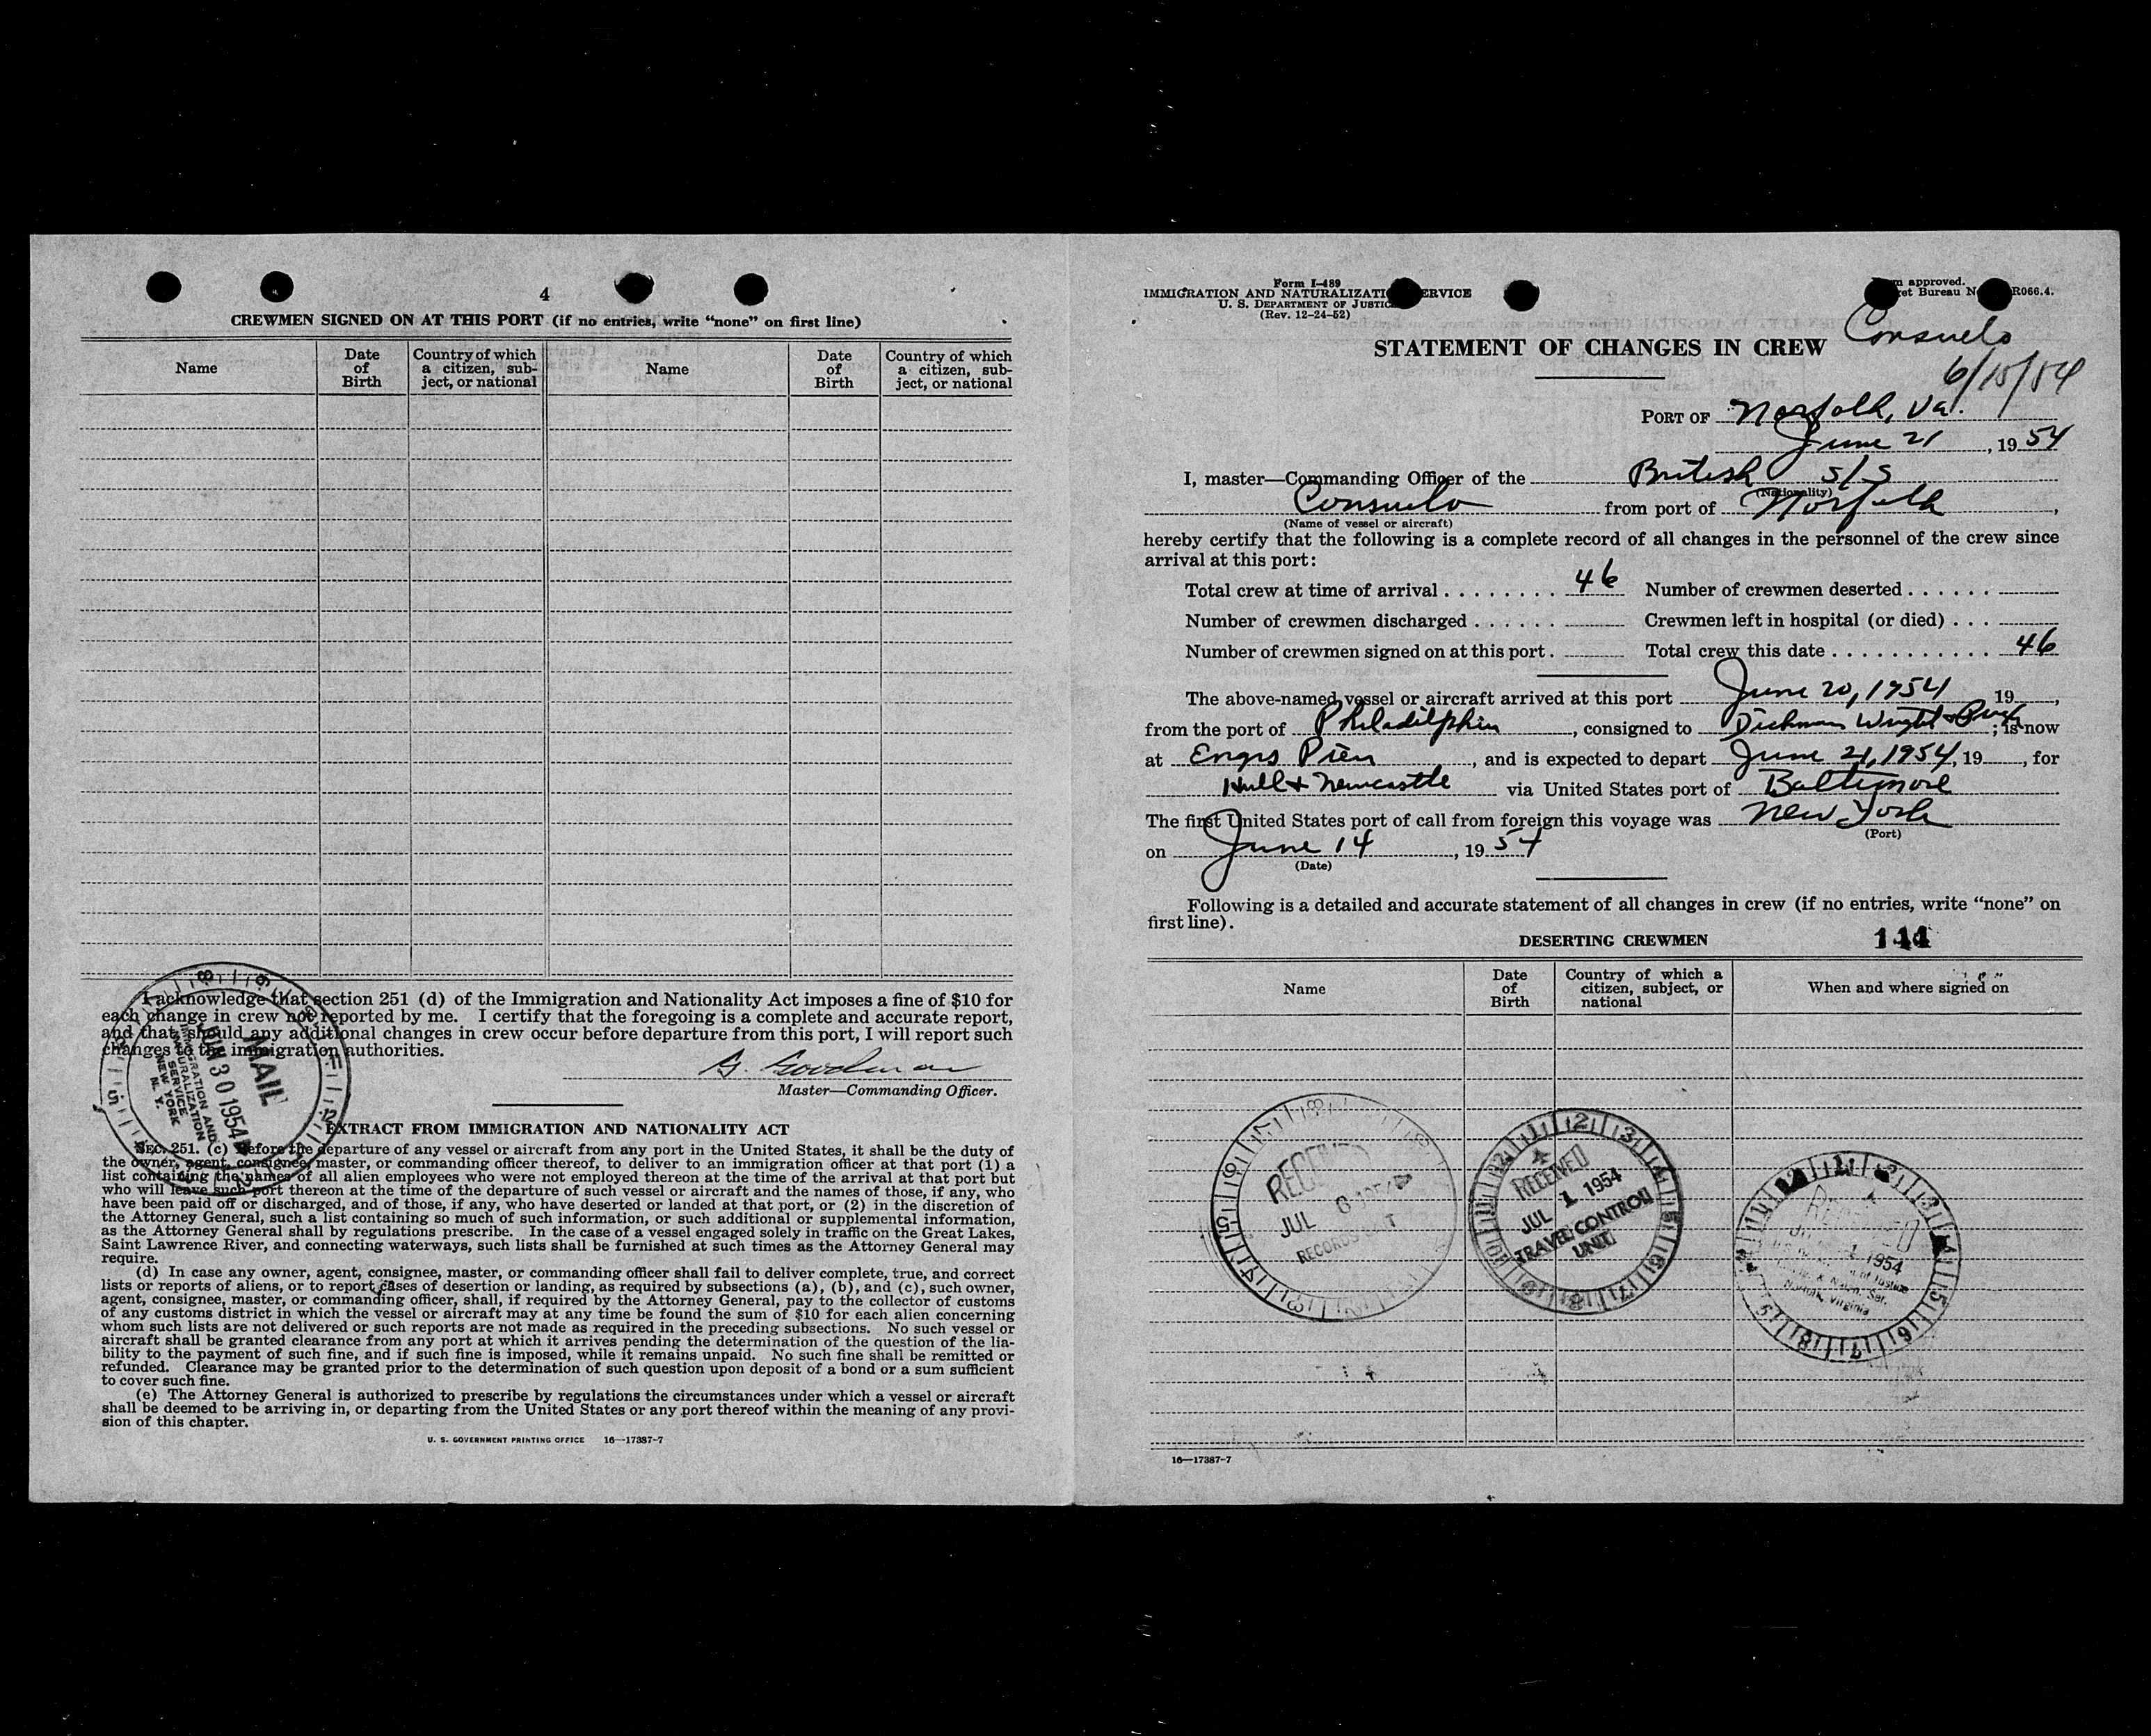 4
CREWMEN SIGNED ON AT THIS PORT (if no entries, write “none” on first line)
Name
Date of Birth
Country of which a citizen, sub-ject, or national
Name
Date of Birth
Country of which a citizen, sub-ject, or national
I acknowledge that section 251 (d) of the Immigration and Nationality Act imposes a fine of $10 for
each change in crew not reported by me. I certify that the foregoing is a complete and accurate report,
and that should any additional changes in crew occur before departure from this port, I will report such
changes to the immigration authorities.
G. Goodman
Master—Commanding Officer.
MAIL
JUN 30 1954
IMMIGRATION AND
NATURALIZATION
SERVICE
NEW YORK
N. Y.
EXTRACT FROM IMMIGRATION AND NATIONALITY ACT
SEC. 251. (c) Before the departure of any vessel or aircraft from any port in the United States, it shall be the duty of
the owner, agent, consignee, master, or commanding officer thereof, to deliver to an immigration officer at that port (1) a
list containing the names of all alien employees who were not employed thereon at the time of the arrival at that port but
who will leave such port thereon at the time of the departure of such vessel or aircraft and the names of those, if any, who
have been paid off or discharged, and of those, if any, who have deserted or landed at that port, or (2) in the discretion of
the Attorney General, such a list containing so much of such information, or such additional or supplemental information,
as the Attorney General shall by regulations prescribe. In the case of a vessel engaged solely in traffic on the Great Lakes,
Saint Lawrence River, and connecting waterways, such lists shall be furnished at such times as the Attorney General may
require.
(d) In case any owner, agent, consignee, master, or commanding officer shall fail to deliver complete, true, and correct
lists or reports of aliens, or to report cases of desertion or landing, as required by subsections (a), (b), and (c), such owner,
agent, consignee, master, or commanding officer, shall, if required by the Attorney General, pay to the collector of customs
of any customs district in which the vessel or aircraft may at any time be found the sum of $10 for each alien concerning
whom such lists are not delivered or such reports are not made as required in the preceding subsections. No such vessel or
aircraft shall be granted clearance from any port at which it arrives pending the determination of the question of the lia-
bility to the payment of such fine, and if such fine is imposed, while it remains unpaid. No such fine shall be remitted or
refunded. Clearance may be granted prior to the determination of such question upon deposit of a bond or a sum sufficient
to cover such fine.
(e) The Attorney General is authorized to prescribe by regulations the circumstances under which a vessel or aircraft
shall be deemed to be arriving in, or departing from the United States or any port thereof within the meaning of any provi-
sion of this chapter.
U. S. GOVERNMENT PRINTING OFFICE 16—17387-7
Form I-489
IMMIGRATION AND NATURALIZATI ERVICE
U. S. DEPARTMENT OF JUSTIC
(Rev. 12-24-52)
approved.
et Bureau N R066.4.
Consuelo
6/15/54
STATEMENT OF CHANGES IN CREW
PORT OF Norfolk, Va.
June 21, 1954
I, master—Commanding Officer of the British S/S
(Nationality)
Consuelo from port of Norfolk,
(Name of vessel or aircraft)
hereby certify that the following is a complete record of all changes in the personnel of the crew since
arrival at this port:
Total crew at time of arrival 46 Number of crewmen deserted
Number of crewmen discharged Crewmen left in hospital (or died)
Number of crewmen signed on at this port. Total crew this date 46
The above-named vessel or aircraft arrived at this port June 20, 1954 19 ,
from the port of Philadelphia, consigned to Dichman Wright & Pugh; is now
at Engrs Pier, and is expected to depart June 21, 1954, 19 , for
Hull & Newcastle via United States port of Baltimore
The first United States port of call from foreign this voyage was New York
(Port)
on June 14, 1954
(Date)
Following is a detailed and accurate statement of all changes in crew (if no entries, write “none” on
first line).
DESERTING CREWMEN
Name
Date of Birth
Country of which a citizen, subject, or national
When and where signed on
RECEIVED
JUL 6 1954
RECORDS UNIT
RECEIVED
JUL 1 1954
TRAVEL CONTROL
UNIT
RECEIVED
1 1954
Norfolk, Virginia
16—17387-7